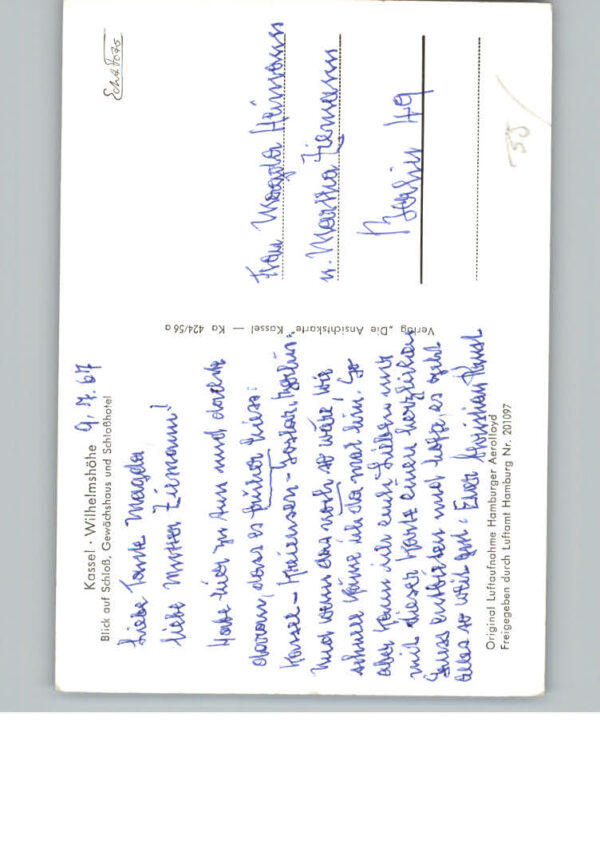 Kassel · Wilhelmshöhe 9.7.67
Blick auf Schloß, Gewächshaus und Schloßhotel
Liebe Tante Magda
liebe Mutter Ziemann!
Habe hier zu tun und denke
daran, dass es früher hiess:
Kassel – Kreiensen – Goslar, Berlin.
Und wenn das noch so wäre, wie
schnell käme ich da mal hin. So
aber kann ich euch Lieben nur
mit dieser Karte einen herzlichen
Gruss entbieten und hoffe, es geht
alles so weit gut. Euer Christian
Original Luftaufnahme Hamburger Aerolloyd
Freigegeben durch Luftamt Hamburg Nr. 201097
Verlag „Die Ansichtskarte“ Kassel — Ka 424/56 a
Frau Magda Heimann
u. Martha Ziemann
Berlin 49
55